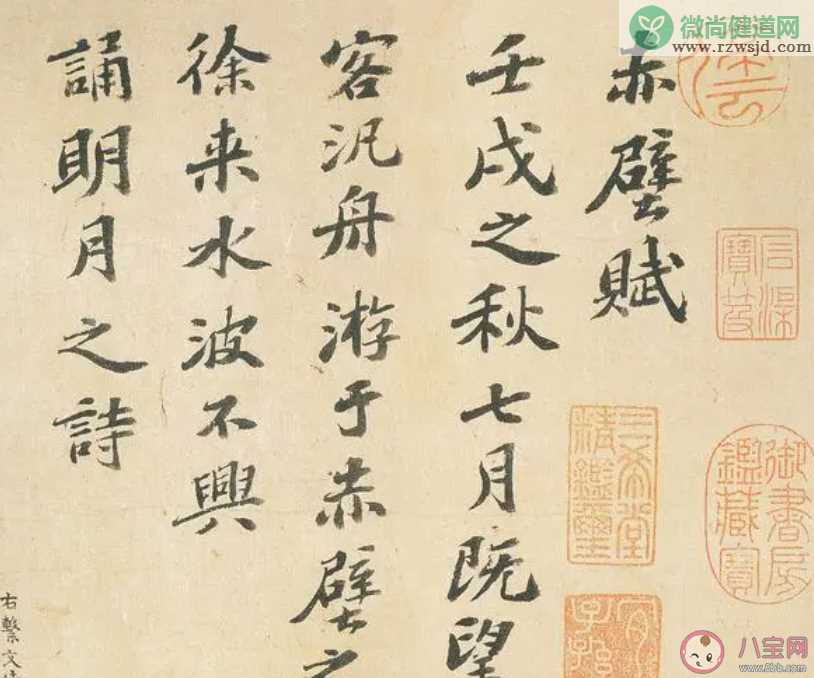 赤壁賦
壬戌之秋七月既望
客汎舟游于赤壁之
徐来水波不興
誦明月之詩
右繫文
三希堂精鑑璽
御書房鑑藏寶
微尚健道网
www.rzwsjd.com
八宝网
www.8bb.com